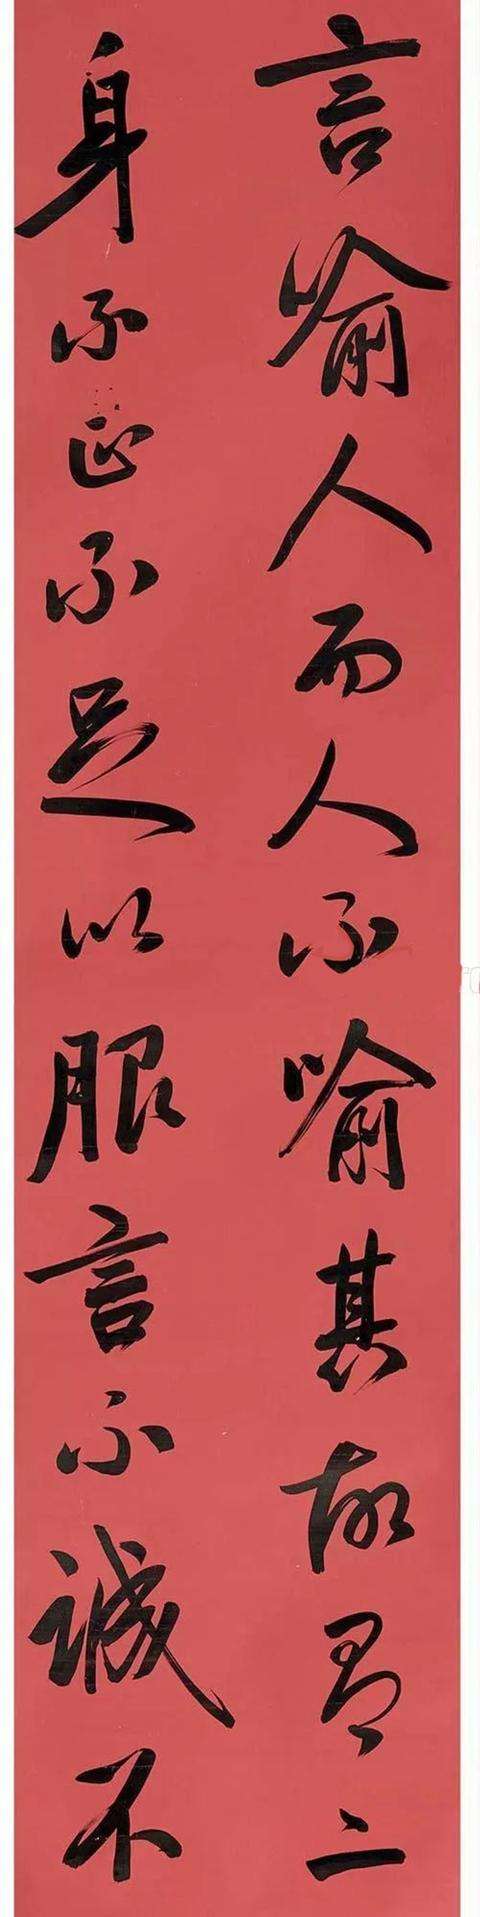 言喻人而人不喻其故有二
身不正不足以服言不誠不